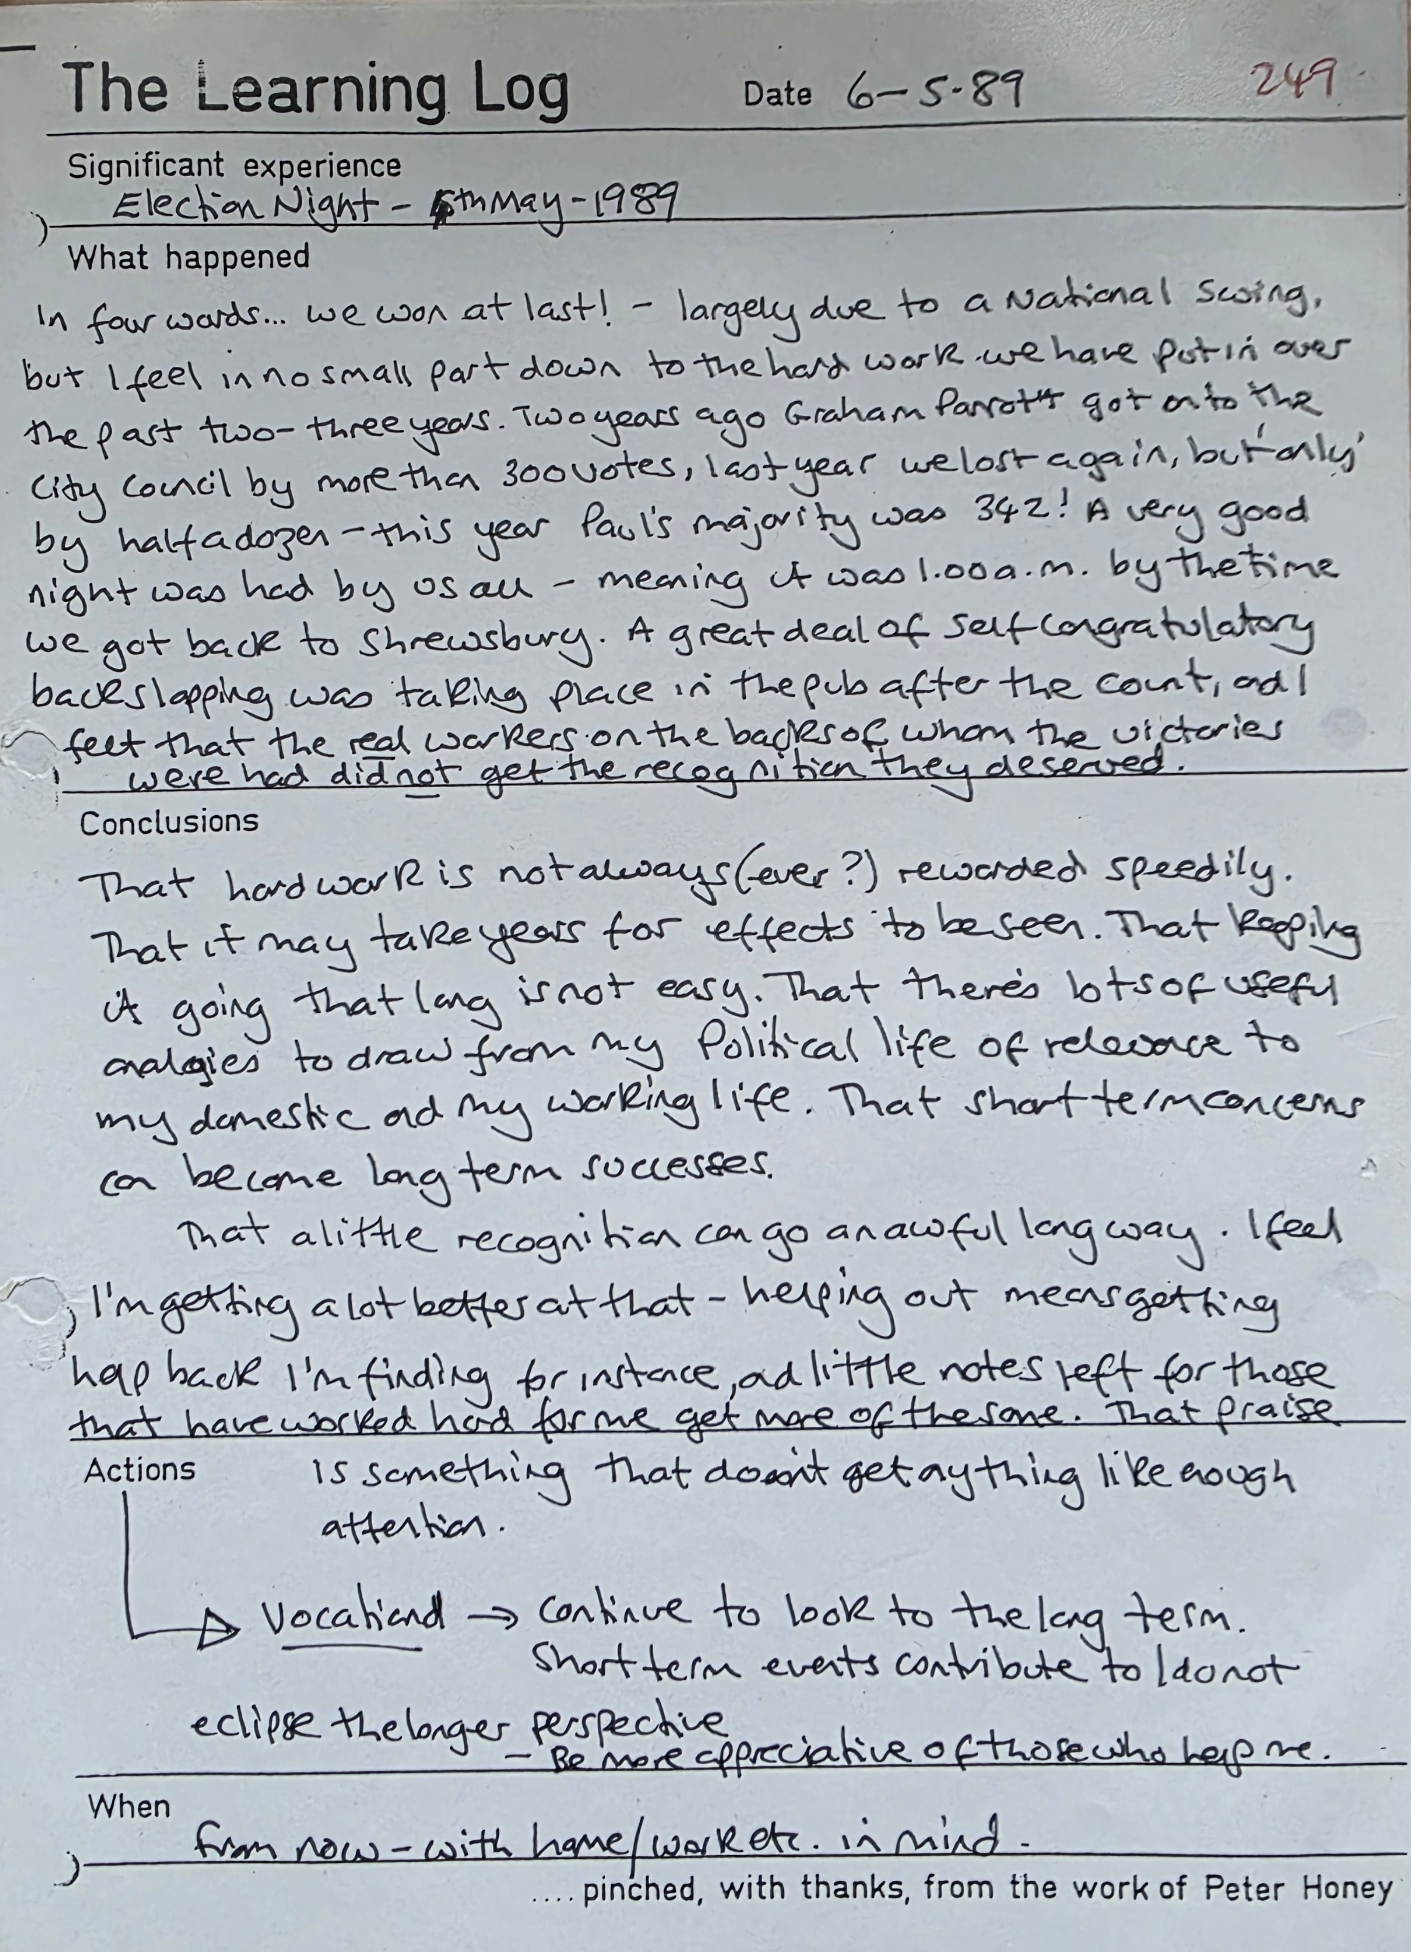 The Learning Log Date 6-5-89 249
Significant experience
Election Night - 5th May - 1989
What happened
In four words... we won at last! - largely due to a National Swing,
but I feel in no small part down to the hard work we have put in over
the past two-three years. Two years ago Graham Parrott got onto the
City Council by more than 300 votes, last year we lost again, but 'only'
by half a dozen - this year Paul's majority was 342! A very good
night was had by us all - meaning it was 1.00 a.m. by the time
we got back to Shrewsbury. A great deal of self congratulatory
backslapping was taking place in the pub after the count, ad I
felt that the real workers on the backs of whom the victories
were had did not get the recognition they deserved.
Conclusions
That hard work is not always (ever?) rewarded speedily.
That it may take years for effects to be seen. That keeping
it going that long is not easy. That there's lots of useful
analogies to draw from my Political life of relevance to
my domestic ad my working life. That short term concerns
can become long term successes.
That a little recognition can go an awful long way. I feel
I'm getting a lot better at that - helping out means getting
help back I'm finding for instance, ad little notes left for those
that have worked hard for me get more of the same. That praise
Actions is something that doesn't get anything like enough
attention.
Vocational → Continue to look to the long term.
Short term events contribute to / do not
eclipse the longer perspective
- Be more appreciative of those who help me.
When
from now - with home/work etc. in mind.
.... pinched, with thanks, from the work of Peter Honey